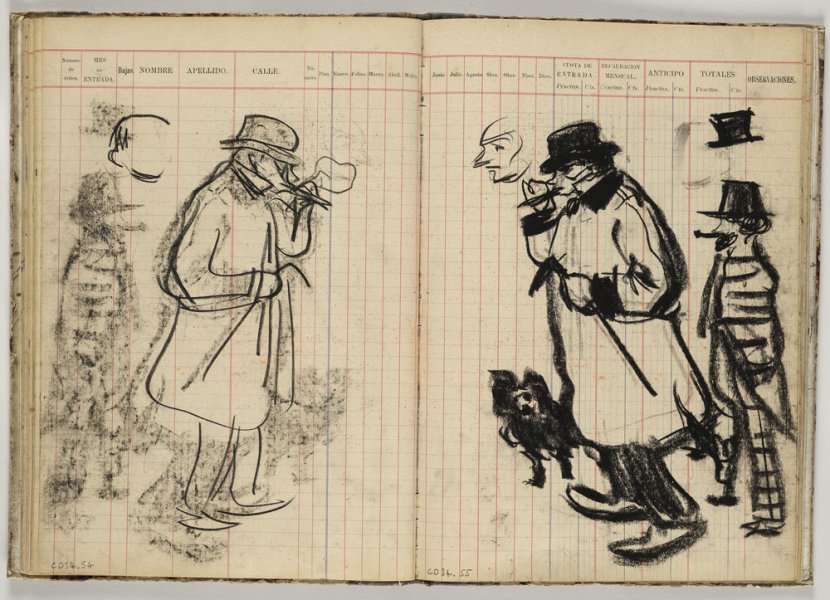 Número de orden. MES DE ENTRADA. Bajas. NOMBRE. APELLIDO. CALLE. Nú- mero Piso. Enero. Febro. Marzo. Abril. Mayo.
Junio. Julio. Agosto Sbre. Obre. Nbre. Dbre. CUOTA DE ENTRADA. Pesetas. Cts. RECAUDACION MENSUAL. Pesetas. Cts. ANTICIPO Pesetas. Cts. TOTALES Pesetas. Cts. OBSERVACIONES.
CD34.54
CD34.55